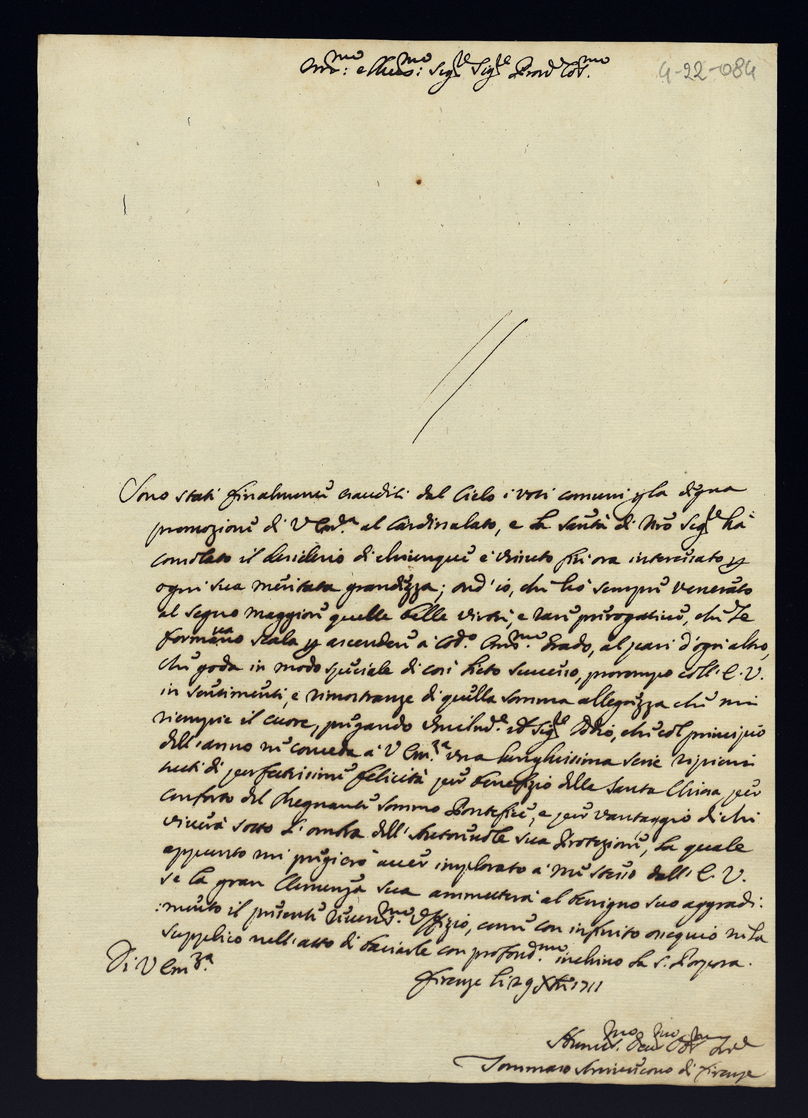 4-22-084
Em.mo: e Reu.mo: Sig.re Sig.re Pron Col.mo
Sono stati finalmente esauditi dal Cielo i voti comuni p la digna
promozione di V Em.a al Cardinalato, e la Santà di Nro Sig.re ha
consolato il desiderio di chiunque è vissuto fin ora interessato p
ogni sua meritata grandezza; ond'io, che hò sempre venerato
al segno maggiore quelle belle virtù, e rare prerogative, che Le
formano scala p ascendere à Grado, al pari d'ogni altro,
che goda in modo speciale di così lieto successo, prorompo coll' E. V.
in sentimenti, e rimostranze di quella somma allegrezza che mi
riempie il cuore, pregando il Sig.re Iddio, che col principio
dell'anno ne conceda à V Em.za una lunghissima serie ripiena
di perfettissime felicità per benefizio della Santa Chiesa per
conforto del Regnante Sommo Pontefice, e per vantaggio di chi
viverà sotto l'ombra dell' sua Protezione, la quale
appunto mi pregierò aver implorato à me stesso dall' E. V.
se la gran Clemenza sua ammetterà al benigno suo aggradi:
:mento il presente Uffizio, come con infinito ossequio ne la
supplico nell'atto di baciarle con profond.mo inchino la S. Porpora.
Di V Em.za
Firenze li 29 Xbre 1711
Humil.mo Deu.mo Obl.mo
Tommaso Arcivescovo di Firenze